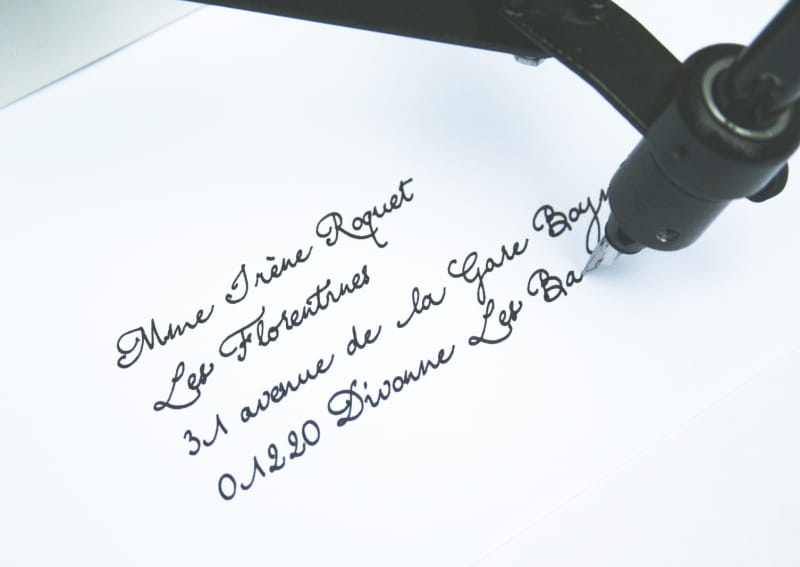 Mme Irène Roquet
Les Florentines
31 avenue de la Gare
01220 Divonne Les Ba